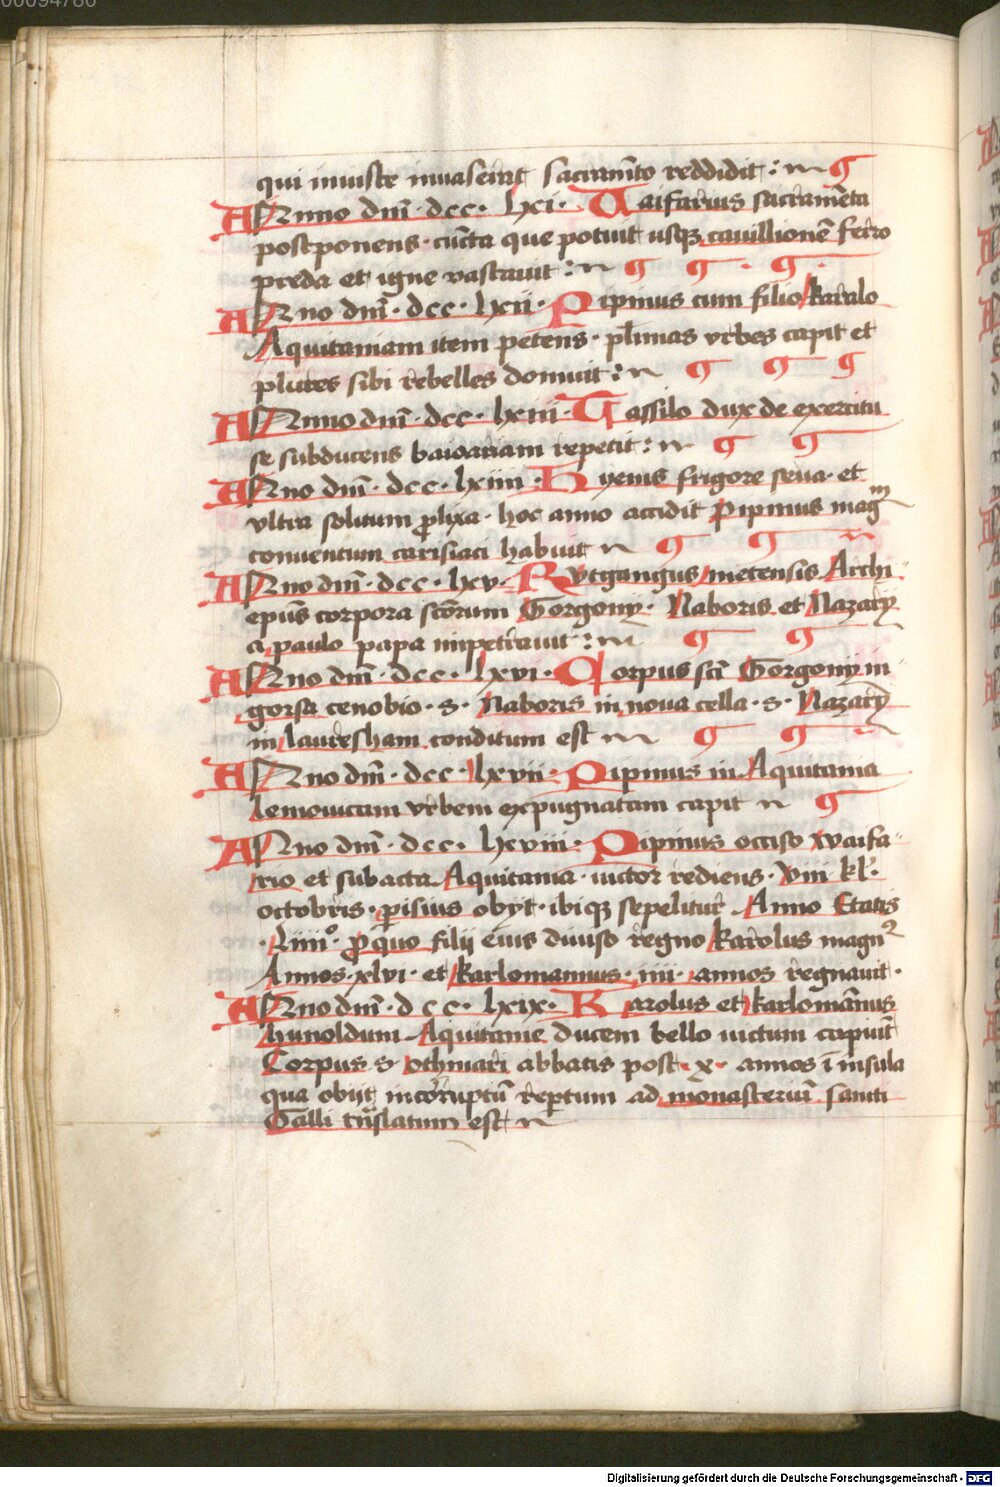 00094780
qui iniuste inuaserat sacram̄to reddidit :
Anno dnī · dcc · lxi · Uaifarius sacram̄eta
postponens · cūcta que potuit usqꝫ cauillionē ferro
preda et igne vastauit :
Anno dnī · dcc · lxii · Pipinus cum filio karolo
Aquitaniam item petens · pl̄imas vrbes capit et
plures sibi rebelles domuit :
Anno dnī · dcc · lxiii · Tassilo dux de exercitu
se subducens baioariam repetit :
Anno dnī · dcc · lxiiii · Hyems frigore seua · et
vltra solitum ꝓlixa · hoc anno accidit Pipinus mag᷒m
conuentum carisiaci habuit
Anno dnī · dcc · lxv · Rutgangus metensis Archi
epūs corpora sctōrum Gorgonij · Naboris et Nazarij
a paulo papa impetrauit :
Anno dnī · dcc · lxvi · Corpus scī Gorgonij in
gorsa cenobio · S · Naboris in noua cella · S · Nazarij
in lauresham conditum est
Anno dnī · dcc · lxvii · Pipinus in Aquitania
lemouicam vrbem expugnatam capit
Anno dnī · dcc · lxviii · Pipinus occiso waifa
rio et subacta Aquitania · uictor rediens · viii kl̄ ·
octobris · ꝑisius obyt · ibiqꝫ sepelitur Anno Etatis
· Liiii° · ꝓ quo filii eius diuiso regno karolus magnꝰ
Annos · xlvi · et karlomannus · iiii · annos regnauit ·
Anno dnī · dcc · lxix · Karolus et karlomānus
hunoldum Aquitanie ducem bello uictum capiūt
Corpus S othmari abbatis post · x · annos ī insula
qua obijt incorruptū reꝑtum ad monasteriū sancti
Galli trāslatum est
Digitalisierung gefördert durch die Deutsche Forschungsgemeinschaft - DFG